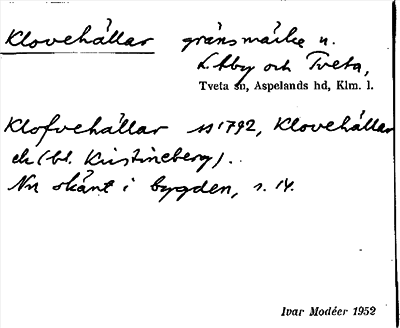 Klovehällar gränsmärke n.
L. Aby och Tveta,
Tveta sn, Aspelands hd, Klm. l.
Klofvehällar ss 1792, Klovehällar
ek (bl. Kristineberg).
Nu okänt i bygden, s. 14.
Ivar Modéer 1952